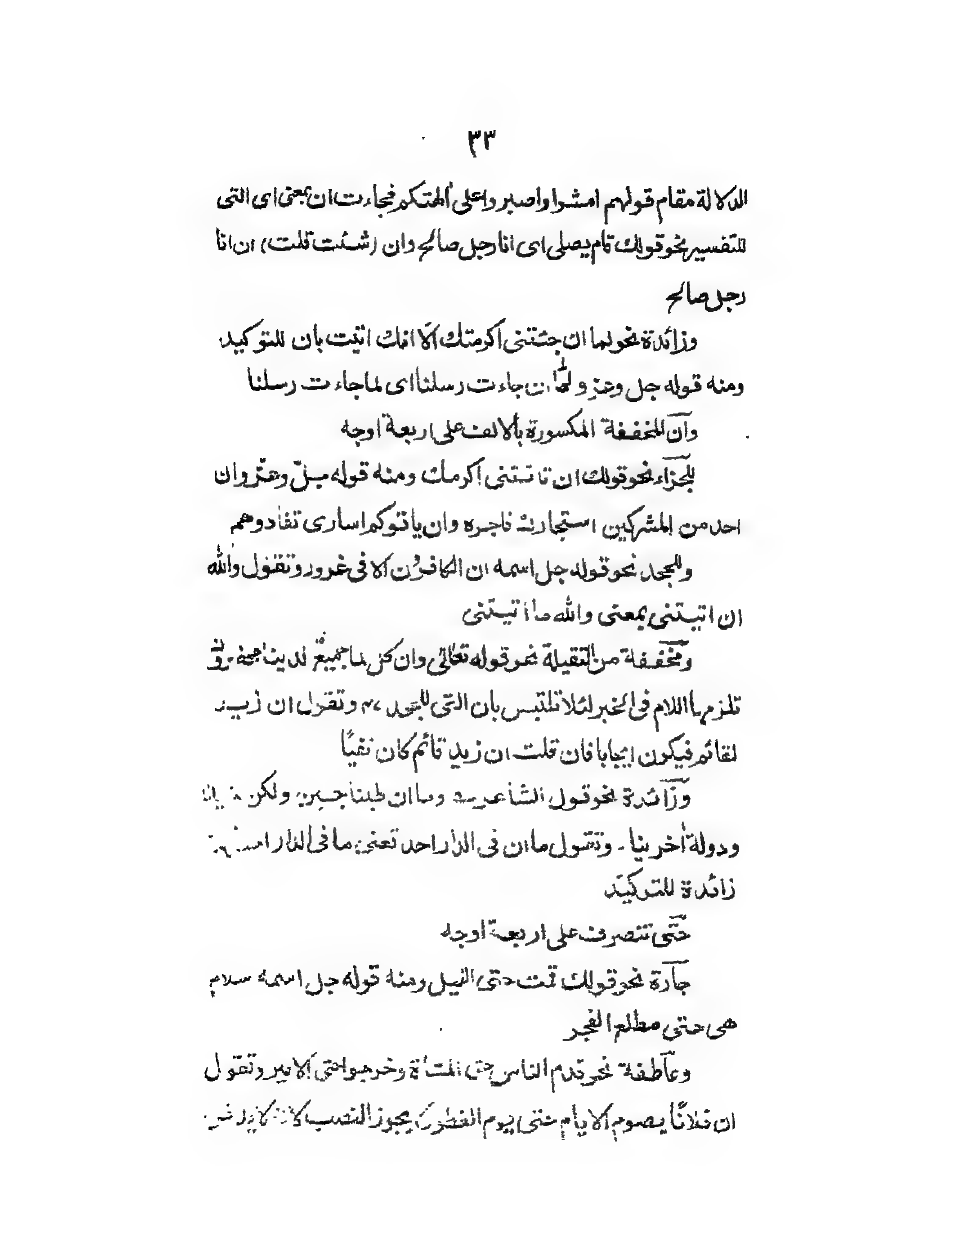 ٣٣
الدلالة مقام قولهم امشوا واصبروا على الهتكم فجاءت ان بمعنى اى التى
للتفسير نحو قولك قام يصلى اى انا رجل صالح وان (شئت قلت) ان انا
رجل صالح
وزائدة نحو لما ان جئتنى اكرمتك الا انك اتيت بان للتوكيد
ومنه قوله جل وعز ولما ان جاءت رسلنا اى لما جاءت رسلنا
وان المخففة المكسورة بالالف على اربعة اوجه
للجزاء نحو قولك ان تاتنى اكرمك ومنه قوله جل وعز وان
احد من المشركين استجارك فاجره وان ياتوكم اسارى تفادوهم
وللجحد نحو قوله جل اسمه ان الكافرون الا فى غرور وتقول والله
ان اتيتنى بمعنى والله ما اتيتنى
ومخففة من الثقيلة نحو قوله تعالى وان كل لما جميع لدينا
تلزمها اللام فى الخبر لئلا تلتبس بان التى للجحد وتقول ان زيد
لقائم فيكون ايجابا فان قلت ان زيد قائم كان نفيًا
وزائدة نحو قول الشاعر وما ان طبنا جبن ولكن
ودولة اخرينا . وتقول ما ان فى الدار احد تعنى ما فى الدار احد
زائدة للتوكيد
حتّى تتصرف على اربعة اوجه
جارة نحو قولك قمت حتى الليل ومنه قوله جل اسمه سلام
هى حتى مطلع الفجر
وعاطفة نحو قدم الناس حتى المشاة وخرجوا حتى الامير وتقول
ان فلانًا يصوم الايام حتى يوم الفطر يجوز النصب